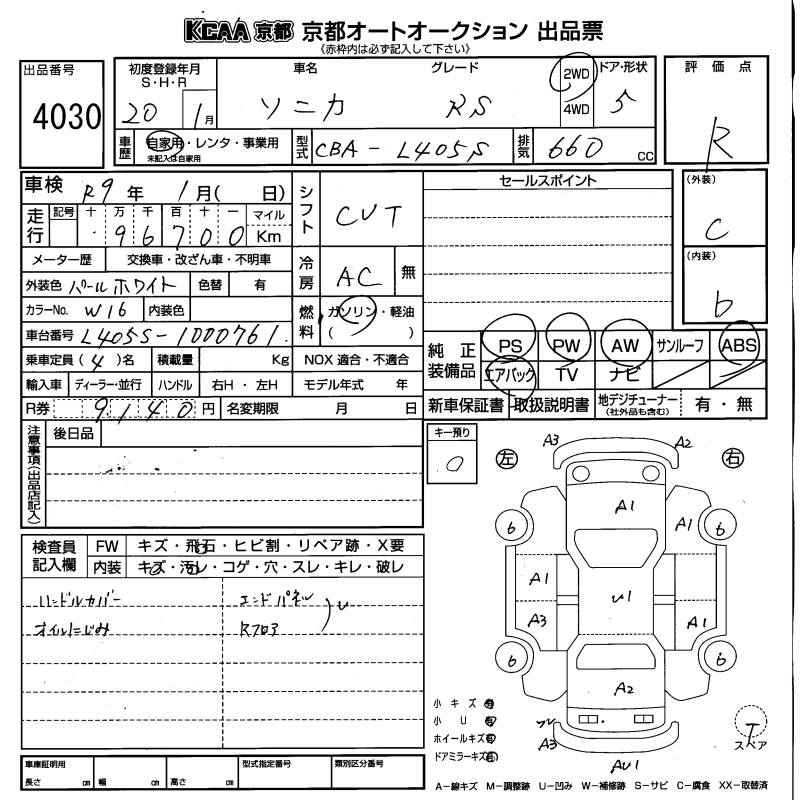 KCAA 京都 京都オートオークション 出品票
《赤枠内は必ず記入して下さい》
出品番号
4030
初度登録年月
S・H・R
20 1月
車名
ソニカ
グレード
RS
2WD
4WD
ドア・形状
5
車歴
自家用・レンタ・事業用
未記入は自家用
型式
CBA-L405S
排気
660 CC
評価点
R
(外装)
C
(内装)
b
車検 R9年 1月( 日)
走行
記号 十 万 千 百 十 一 マイル
96700 Km
メーター歴 交換車・改ざん車・不明車
外装色 パールホワイト 色替 有
カラーNo. W16 内装色
車台番号 L405S-1000761
乗車定員(4)名 積載量 Kg
輸入車 ディーラー・並行 ハンドル 右H・左H
R券 9,140円 名変期限 月 日
シフト
CVT
冷房
AC 無
燃料
ガソリン・軽油
( )
NOX 適合・不適合
モデル年式 年
セールスポイント
純正装備品
PS PW AW サンルーフ ABS
エアバック TV ナビ
新車保証書 取扱説明書 地デジチューナー(社外品も含む) 有・無
注意事項(出品店記入)
後日品
キー預り
0
検査員記入欄
FW キズ・飛石・ヒビ割・リペア跡・X要
内装 キズ・汚レ・コゲ・穴・スレ・キレ・破レ
ハンドルカバー エンドパネル U
オイルにじみ Rフロア
左 右
A3 A2
A1
6 A1 6
A1
U1
A3 A1
6 6
A2
A3
AU1
小キズ有
小U有
ホイールキズ有
ドアミラーキズ有
T
スペア
車庫証明用
長さ cm 幅 cm 高さ cm
型式指定番号 類別区分番号
A-線キズ M-調整跡 U-凹み W-補修跡 S-サビ C-腐食 XX-取替済